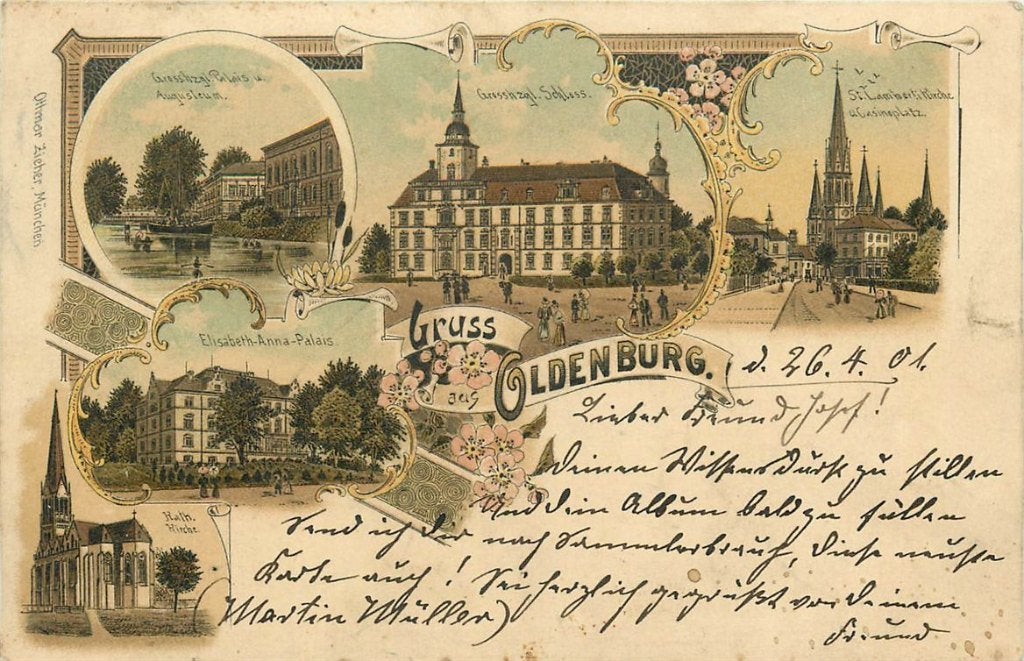 Grosshzgl. Palais u.
Augusteum.
Grosshzgl. Schloss.
St. Lamberti Kirche
u. Casinoplatz.
Ottmar Zieher, München
Elisabeth-Anna-Palais.
Kath.
Kirche
Gruss
aus
OLDENBURG.
d. 26. 4. 01.
Lieber Freund Josef!
Deinen Wissensdurst zu stillen
Und dein Album bald zu füllen
Send ich dir nach Sammlerbrauch, diese neuste
Karte auch! Sei herzlich gegrüßt von deinem
(Martin Müller)
Freund